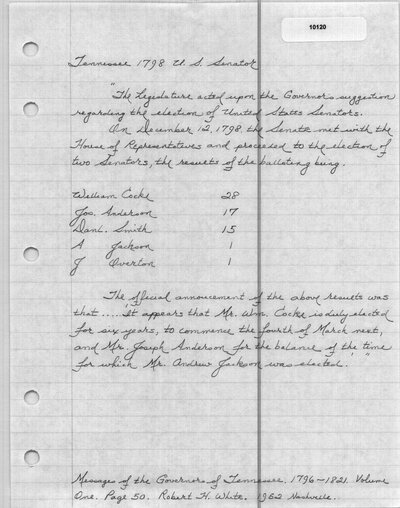 10120
Tennessee 1798 U.S. Senator
"The Legislature acted upon the Governor's suggestion
regarding the election of United States Senators.
On December 12, 1798, the Senate met with the
House of Representatives and proceeded to the election of
two Senators, the results of the balloting being.
William Cocke 28
Jos. Anderson 17
Danl. Smith 15
A Jackson 1
J Overton 1
The official annoucement of the above results was
that ..... 'It appears that Mr. Wm. Cocke is duly elected
for six years, to commence the fourth of March next,
and Mr. Joseph Anderson for the balance of the time
for which Mr. Andrew Jackson was elected.' "
Messages of the Governors of Tennessee. 1796-1821. Volume
One. Page 50. Robert H. White. 1952 Nashville.